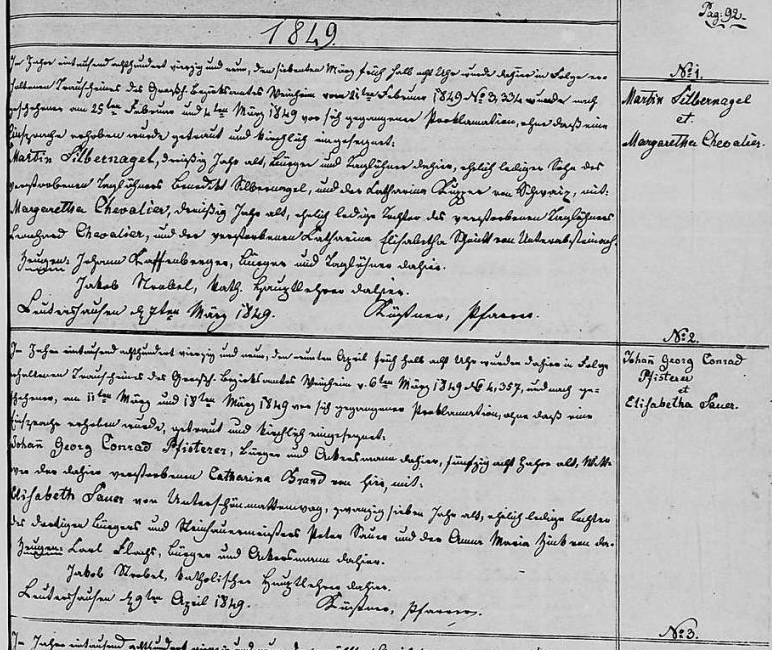 Pag: 92.
1849.
Im Jahre eintausend achthundert vierzig und neun, den siebenten März früh halb acht Uhr wurde dahier in Folge er-
haltenen Trauscheines des Großh. Bezirksamtes Weinheim vom 21ten Februar 1849 No 3,334 wurde nach
geschehener am 25ten Februar und 4ten März 1849 vor sich gegangener Proklamation, ohne daß eine
Einsprache erhoben wurde getraut und kirchlich eingesegnet:
Martin Silbernagel, dreißig Jahr alt, Bürger und Taglöhner dahier, ehelich lediger Sohn des
verstorbenen Taglöhners Benedikt Silbernagel, und der Katharina von mit:
Margaretha Chevalier, dreißig Jahr alt, ehelich ledige Tochter des verstorbenen Taglöhners
Leonhard Chevalier, und der verstorbenen Katharina Elisabetha von
Zeugen: Johann Kaffenberger, Bürger und Taglöhner dahier.
Jakob Strobel, kath. Hauptlehrer dahier.
Leutershausen d. 7ten März 1849. Pfarrer.
No 1.
Martin Silbernagel
et.
Margaretha Chevalier.
Im Jahre eintausend achthundert vierzig und neun, den neunten April früh halb acht Uhr wurden dahier in Folge
erhaltenen Trauscheines des Großh. Bezirksamtes Weinheim v. 6ten März 1849 No 4,357, und nach ge-
schehener, am 11ten März und 18ten März 1849 vor sich gegangener Proklamation, ohne daß eine
Einsprache erhoben wurde, getraut und kirchlich eingesegnet:
Johan̄ Georg Conrad Pfisterer, Bürger und Ackersmann dahier, fünfzig acht Jahre alt, Witt-
wer der dahier verstorbenen Catharina Brand von hier, mit:
Elisabeth Sauer von Unterschönmattenwag, zwanzig sieben Jahr alt, ehelich ledige Tochter
des dortigen Bürgers und Steinhauermeisters Peter Sauer und der Anna Maria Zink von da.
Zeugen: Carl Bürger und Ackersmann dahier.
Jakob Strobel, katholischer Hauptlehrer dahier.
Leutershausen d. 9ten April 1849. Pfarrer.
No 2.
Johan̄ Georg Conrad
Pfisterer
et
Elisabetha Sauer.
No 3.
Im Jahre eintausend achthundert vierzig und neun